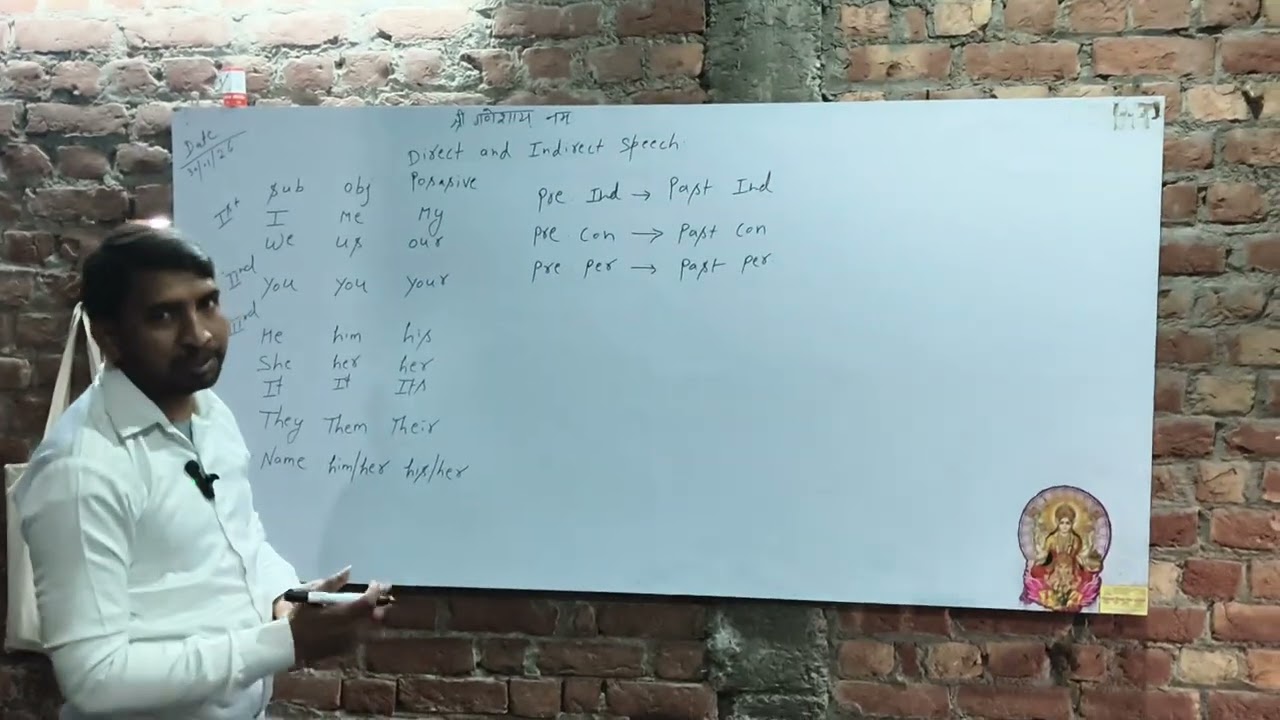 श्री गणेशाय नम
Date
30/01/26
Direct and Indirect Speech
Sub obj Posasive
Ist I Me My
We us our
IInd You you your
IIIrd He him his
She her her
It It Its
They Them Their
Name him/her his/her
Pre Ind → Past Ind
Pre Con → Past Con
Pre Per → Past Per